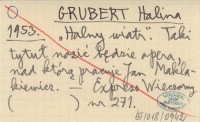 GRUBERT Halina
1953. "Halny wiatr". Taki
tytuł nosić będzie opera,
nad którą pracuje Jan Makla-
kiewicz. — Express Wieczorny
( ) nr 271.